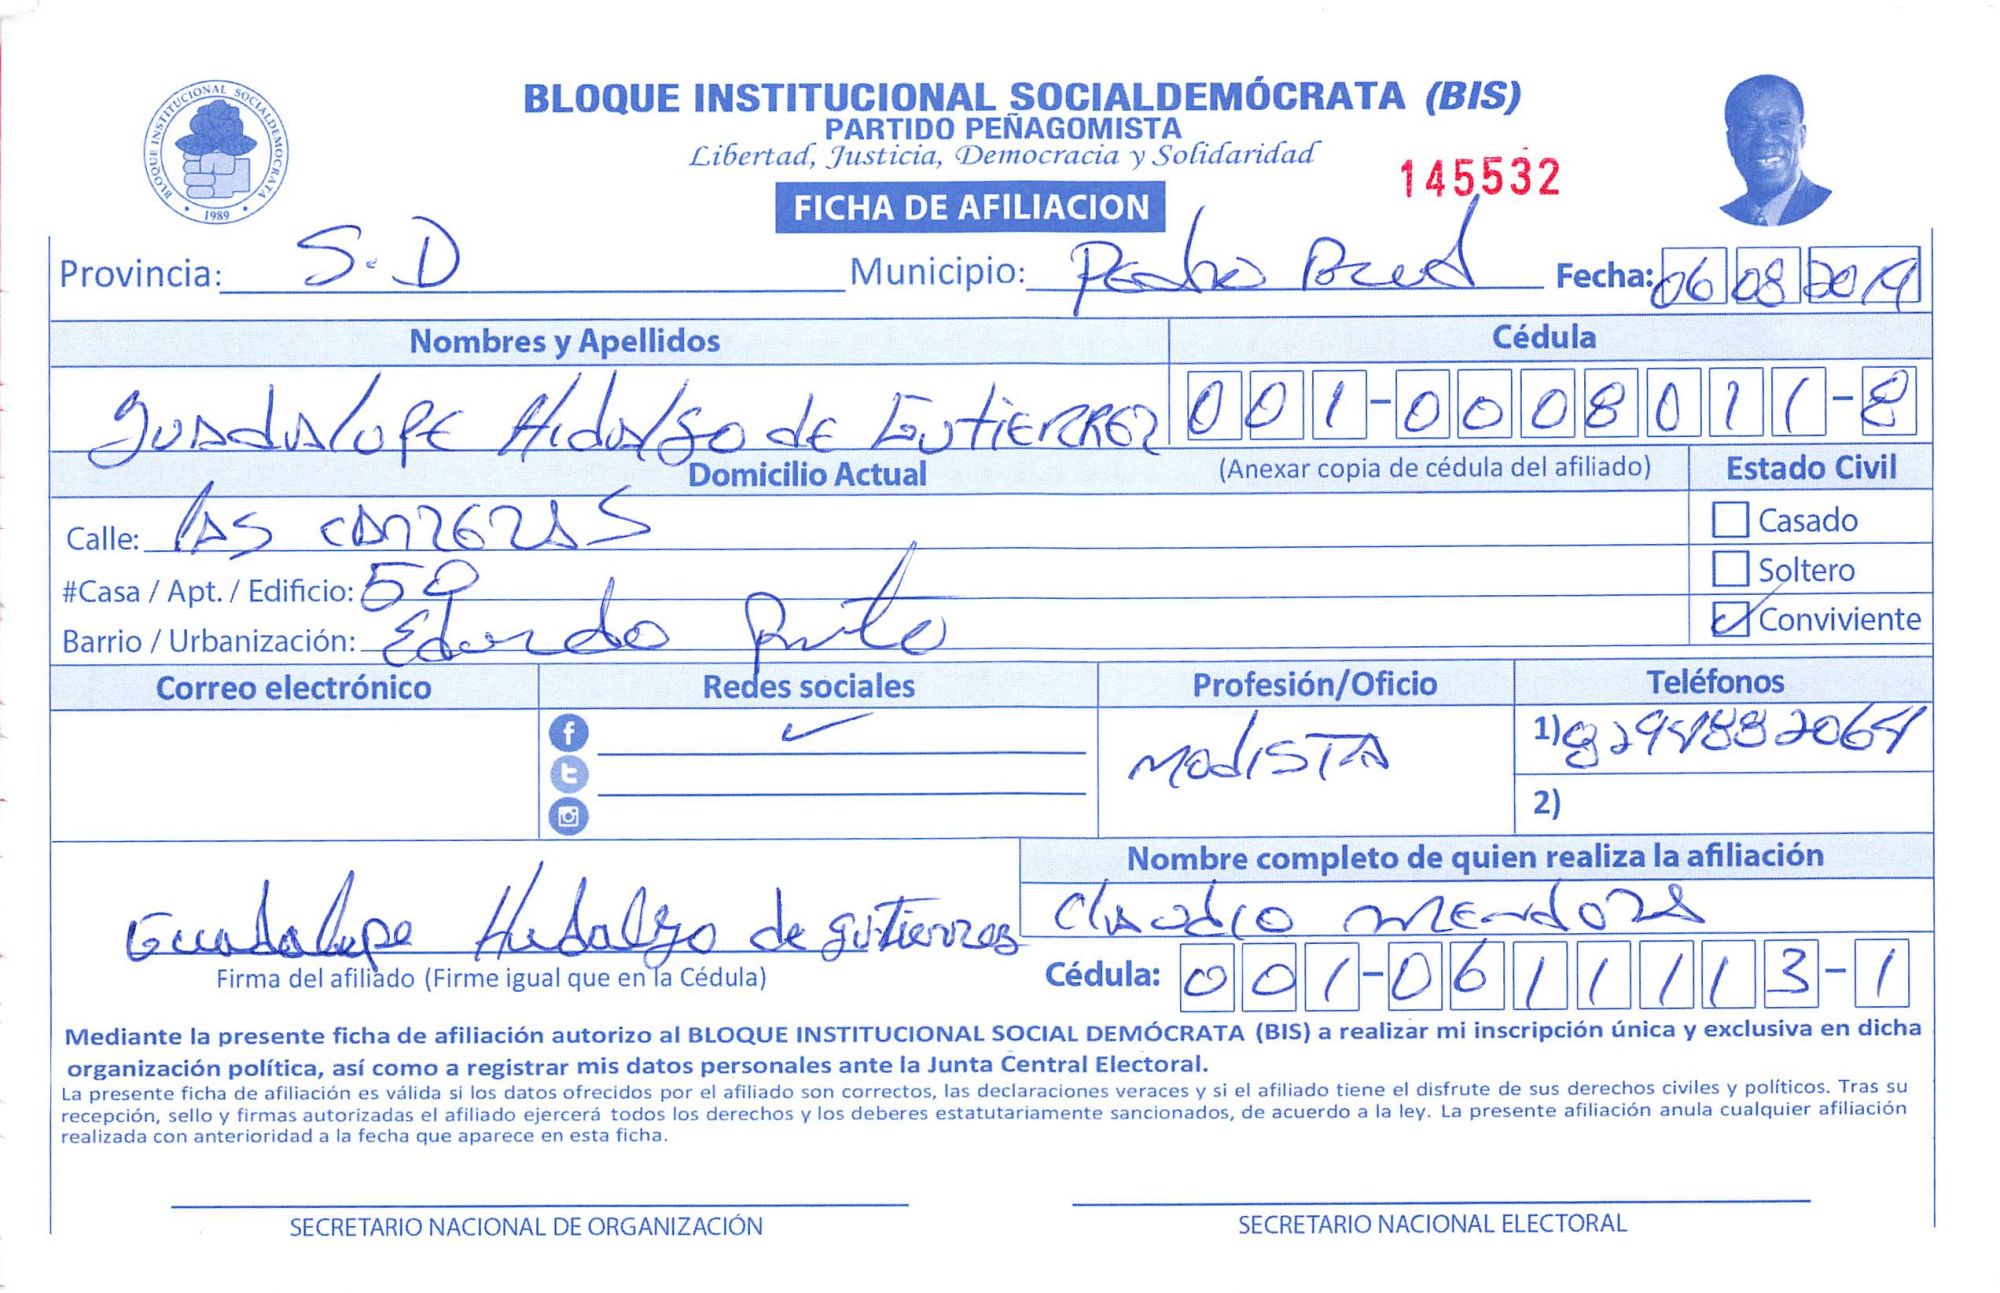 BLOQUE INSTITUCIONAL SOCIALDEMÓCRATA
1989
BLOQUE INSTITUCIONAL SOCIALDEMÓCRATA (BIS)
PARTIDO PEÑAGOMISTA
Libertad, Justicia, Democracia y Solidaridad
145532
FICHA DE AFILIACION
Provincia: S.D Municipio: Pedro Brand Fecha: 06 08 2019
Nombres y Apellidos Cédula
Guadalupe Hidalgo de Gutierrez 001-0008011-8
Domicilio Actual (Anexar copia de cédula del afiliado) Estado Civil
Calle: las Casado
#Casa / Apt. / Edificio: 50 Soltero
Barrio / Urbanización: Eduardo Brito Conviviente
Correo electrónico Redes sociales Profesión/Oficio Teléfonos
Modista 1)
2)
Nombre completo de quien realiza la afiliación
Guadalupe Hidalgo de gutierrez Claudio Mendoza
Firma del afiliado (Firme igual que en la Cédula) Cédula: 001-0611113-1
Mediante la presente ficha de afiliación autorizo al BLOQUE INSTITUCIONAL SOCIAL DEMÓCRATA (BIS) a realizar mi inscripción única y exclusiva en dicha
organización política, así como a registrar mis datos personales ante la Junta Central Electoral.
La presente ficha de afiliación es válida si los datos ofrecidos por el afiliado son correctos, las declaraciones veraces y si el afiliado tiene el disfrute de sus derechos civiles y políticos. Tras su
recepción, sello y firmas autorizadas el afiliado ejercerá todos los derechos y los deberes estatutariamente sancionados, de acuerdo a la ley. La presente afiliación anula cualquier afiliación
realizada con anterioridad a la fecha que aparece en esta ficha.
SECRETARIO NACIONAL DE ORGANIZACIÓN SECRETARIO NACIONAL ELECTORAL